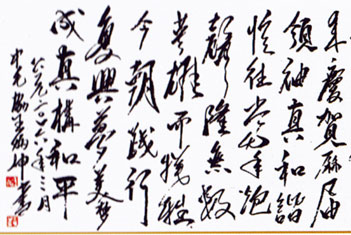 慶賀屆
領袖真和諧
憶往當年炮
聲隆無數
英雄而犧牲
今朝踐行
復興夢美夢
成真構和平
公元二〇一八年三月
書